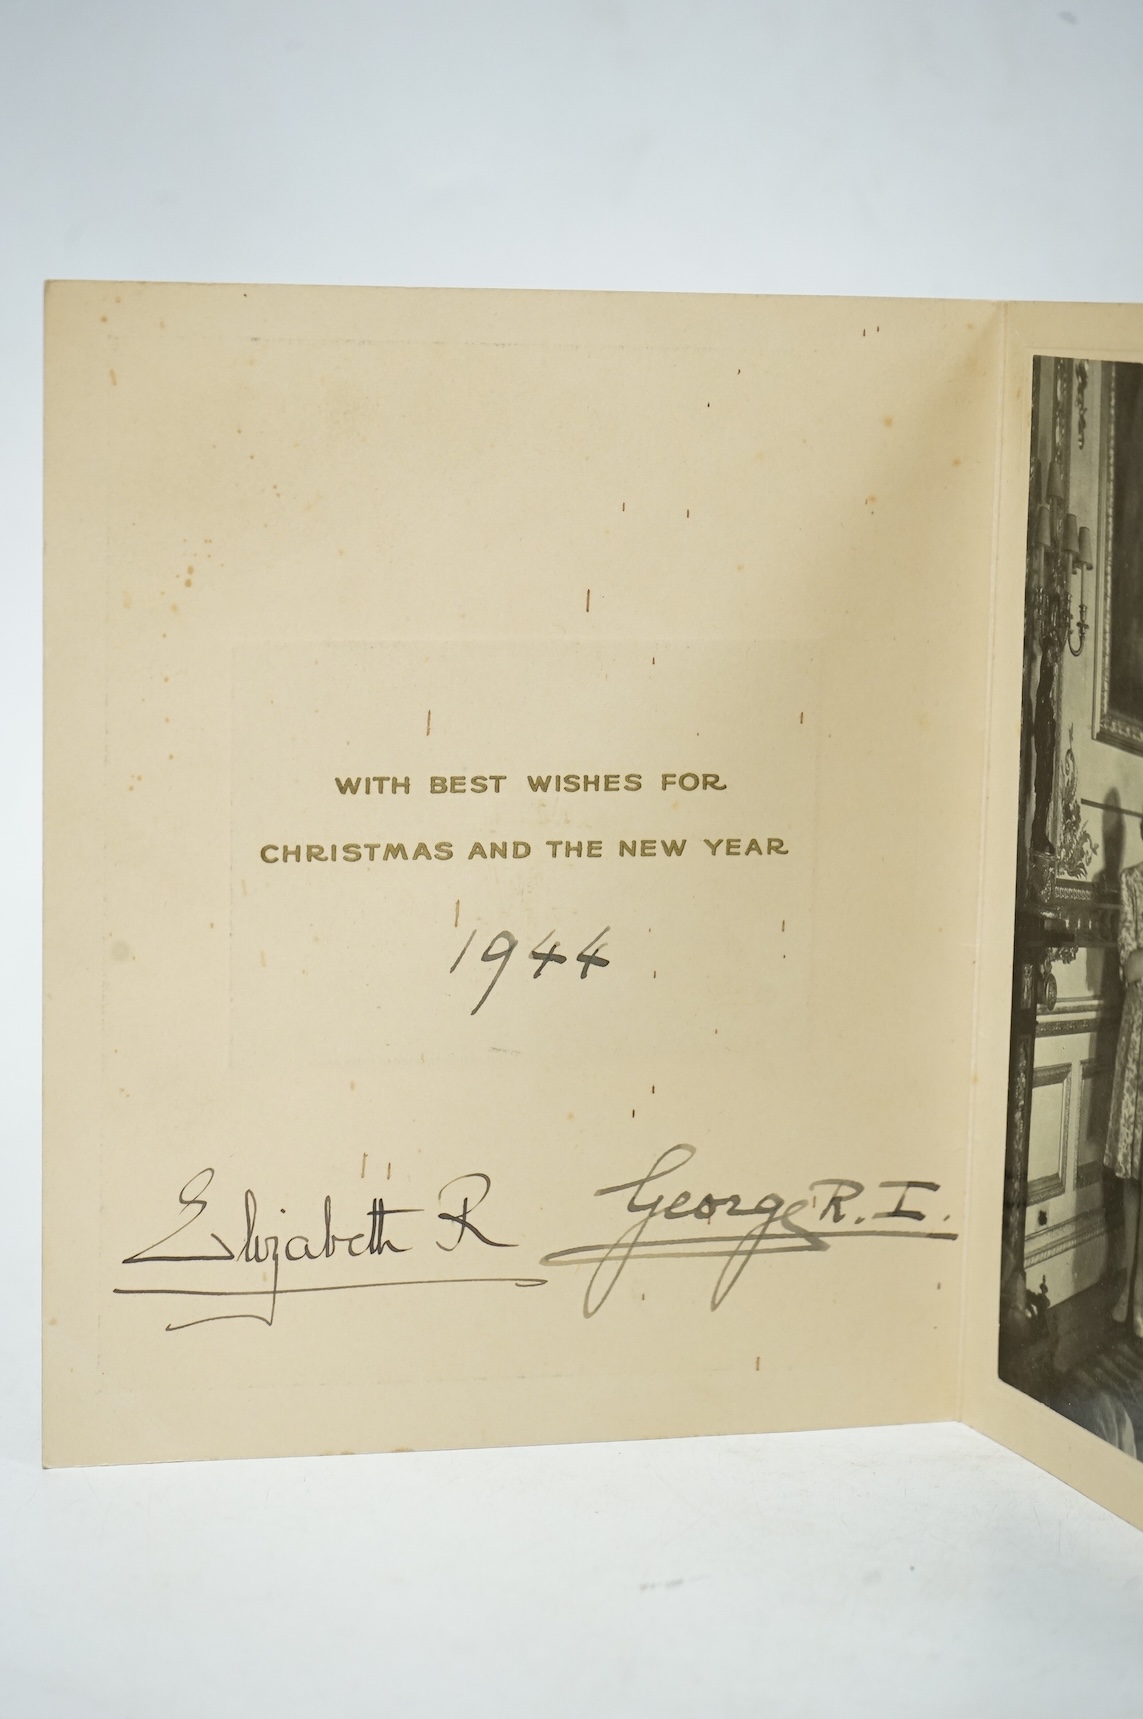 WITH BEST WISHES FOR
CHRISTMAS AND THE NEW YEAR
1944
Elizabeth R
George R. I.